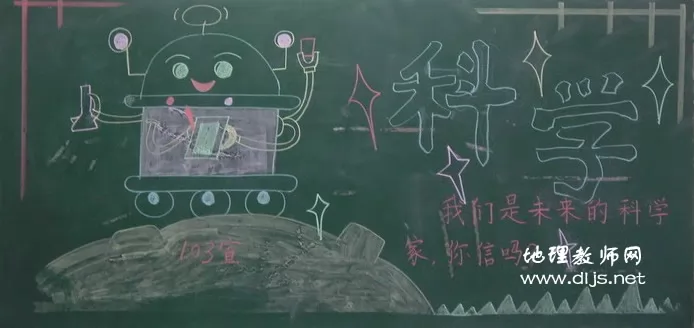 科学
我们是未来的科学
家,你信吗?
103宣
地理教师网
www.dljs.net